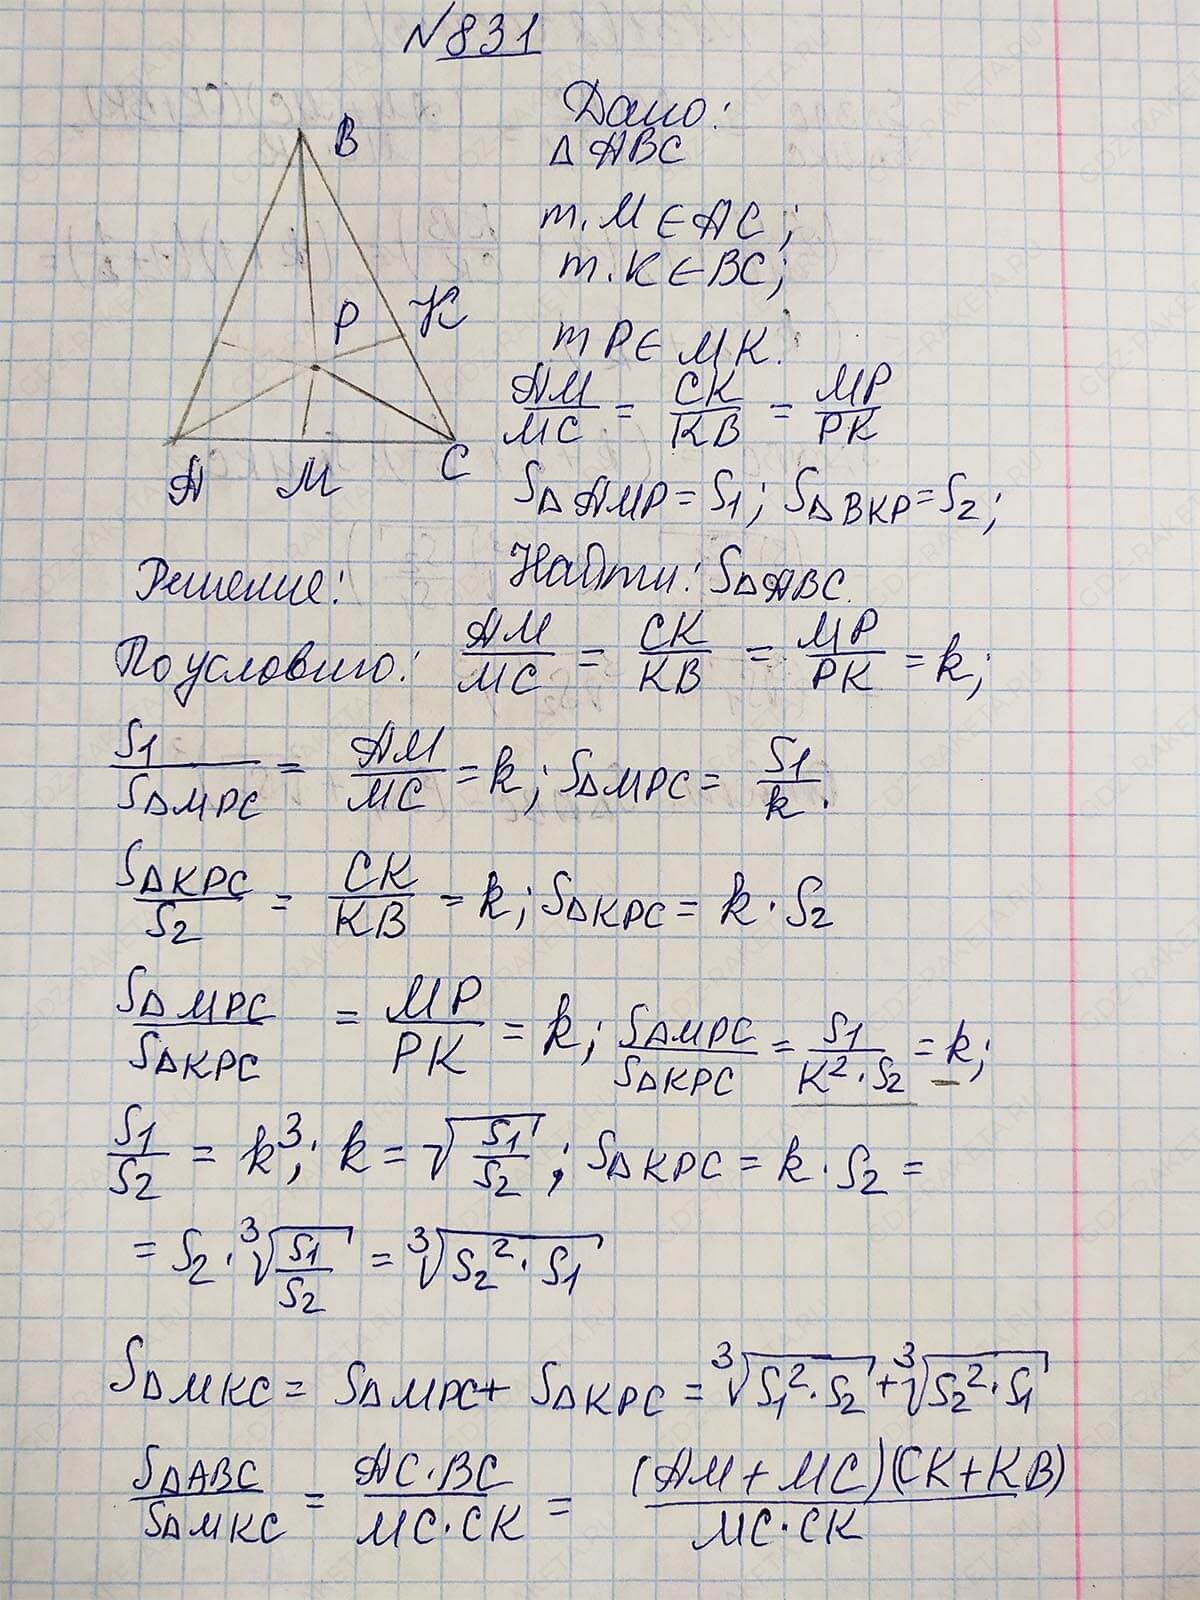 №831
Дано:
△ABC
т. M ∈ AC;
т. K ∈ BC;
т P ∈ MK.
AM/MC = CK/KB = MP/PK
S△AMP = S1; S△BKP = S2;
Найти: S△ABC.
B
P
K
A
M
C
Решение:
По условию: AM/MC = CK/KB = MP/PK = k;
S1/S△MPC = AM/MC = k; S△MPC = S1/k.
S△KPC/S2 = CK/KB = k; S△KPC = k · S2
S△MPC/S△KPC = MP/PK = k; S△MPC/S△KPC = S1/K² · S2 = k;
S1/S2 = k³; k = √(S1/S2); S△KPC = k · S2 =
= S2 · ³√(S1/S2) = ³√(S2² · S1)
S△MKC = S△MPC + S△KPC = ³√(S1² · S2) + ³√(S2² · S1)
S△ABC/S△MKC = AC · BC/MC · CK = (AM + MC)(CK + KB)/MC · CK